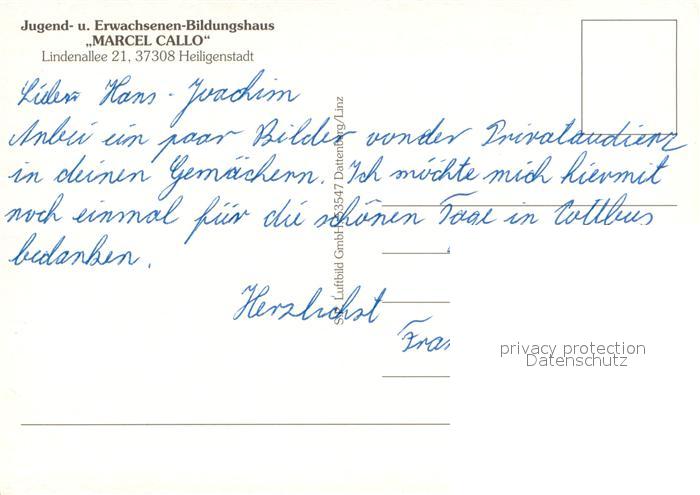 Jugend- u. Erwachsenen-Bildungshaus
„MARCEL CALLO“
Lindenallee 21, 37308 Heiligenstadt
Lieber Hans-Joachim
Anbei ein paar Bilder von der Privataudienz
in deinen Gemächern. Ich möchte mich hiermit
noch einmal für die schönen Tage in Cottbus
bedanken.
Herzlichst
Fra
Luftbild GmbH, 53547 Dattenberg/Linz
privacy protection
Datenschutz